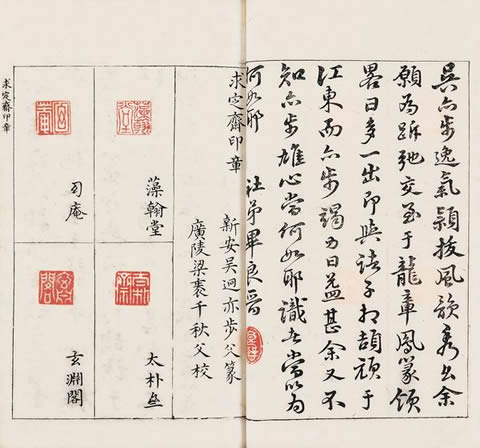 吳亦步逸氣穎拔風韻秀出余
願為跅弛交至于龍章鳳篆領
畧日多一出印與諸子相頡頏于
江東而亦步謁為日益甚余又不
知亦步雄心當何如耶識者當以為
何如耶 社弟畢良晉
求定齋印章
新安吳迥亦步父篆
廣陵梁袠千秋父校
藻翰堂
太朴
庵
玄淵閣
求定齋印章